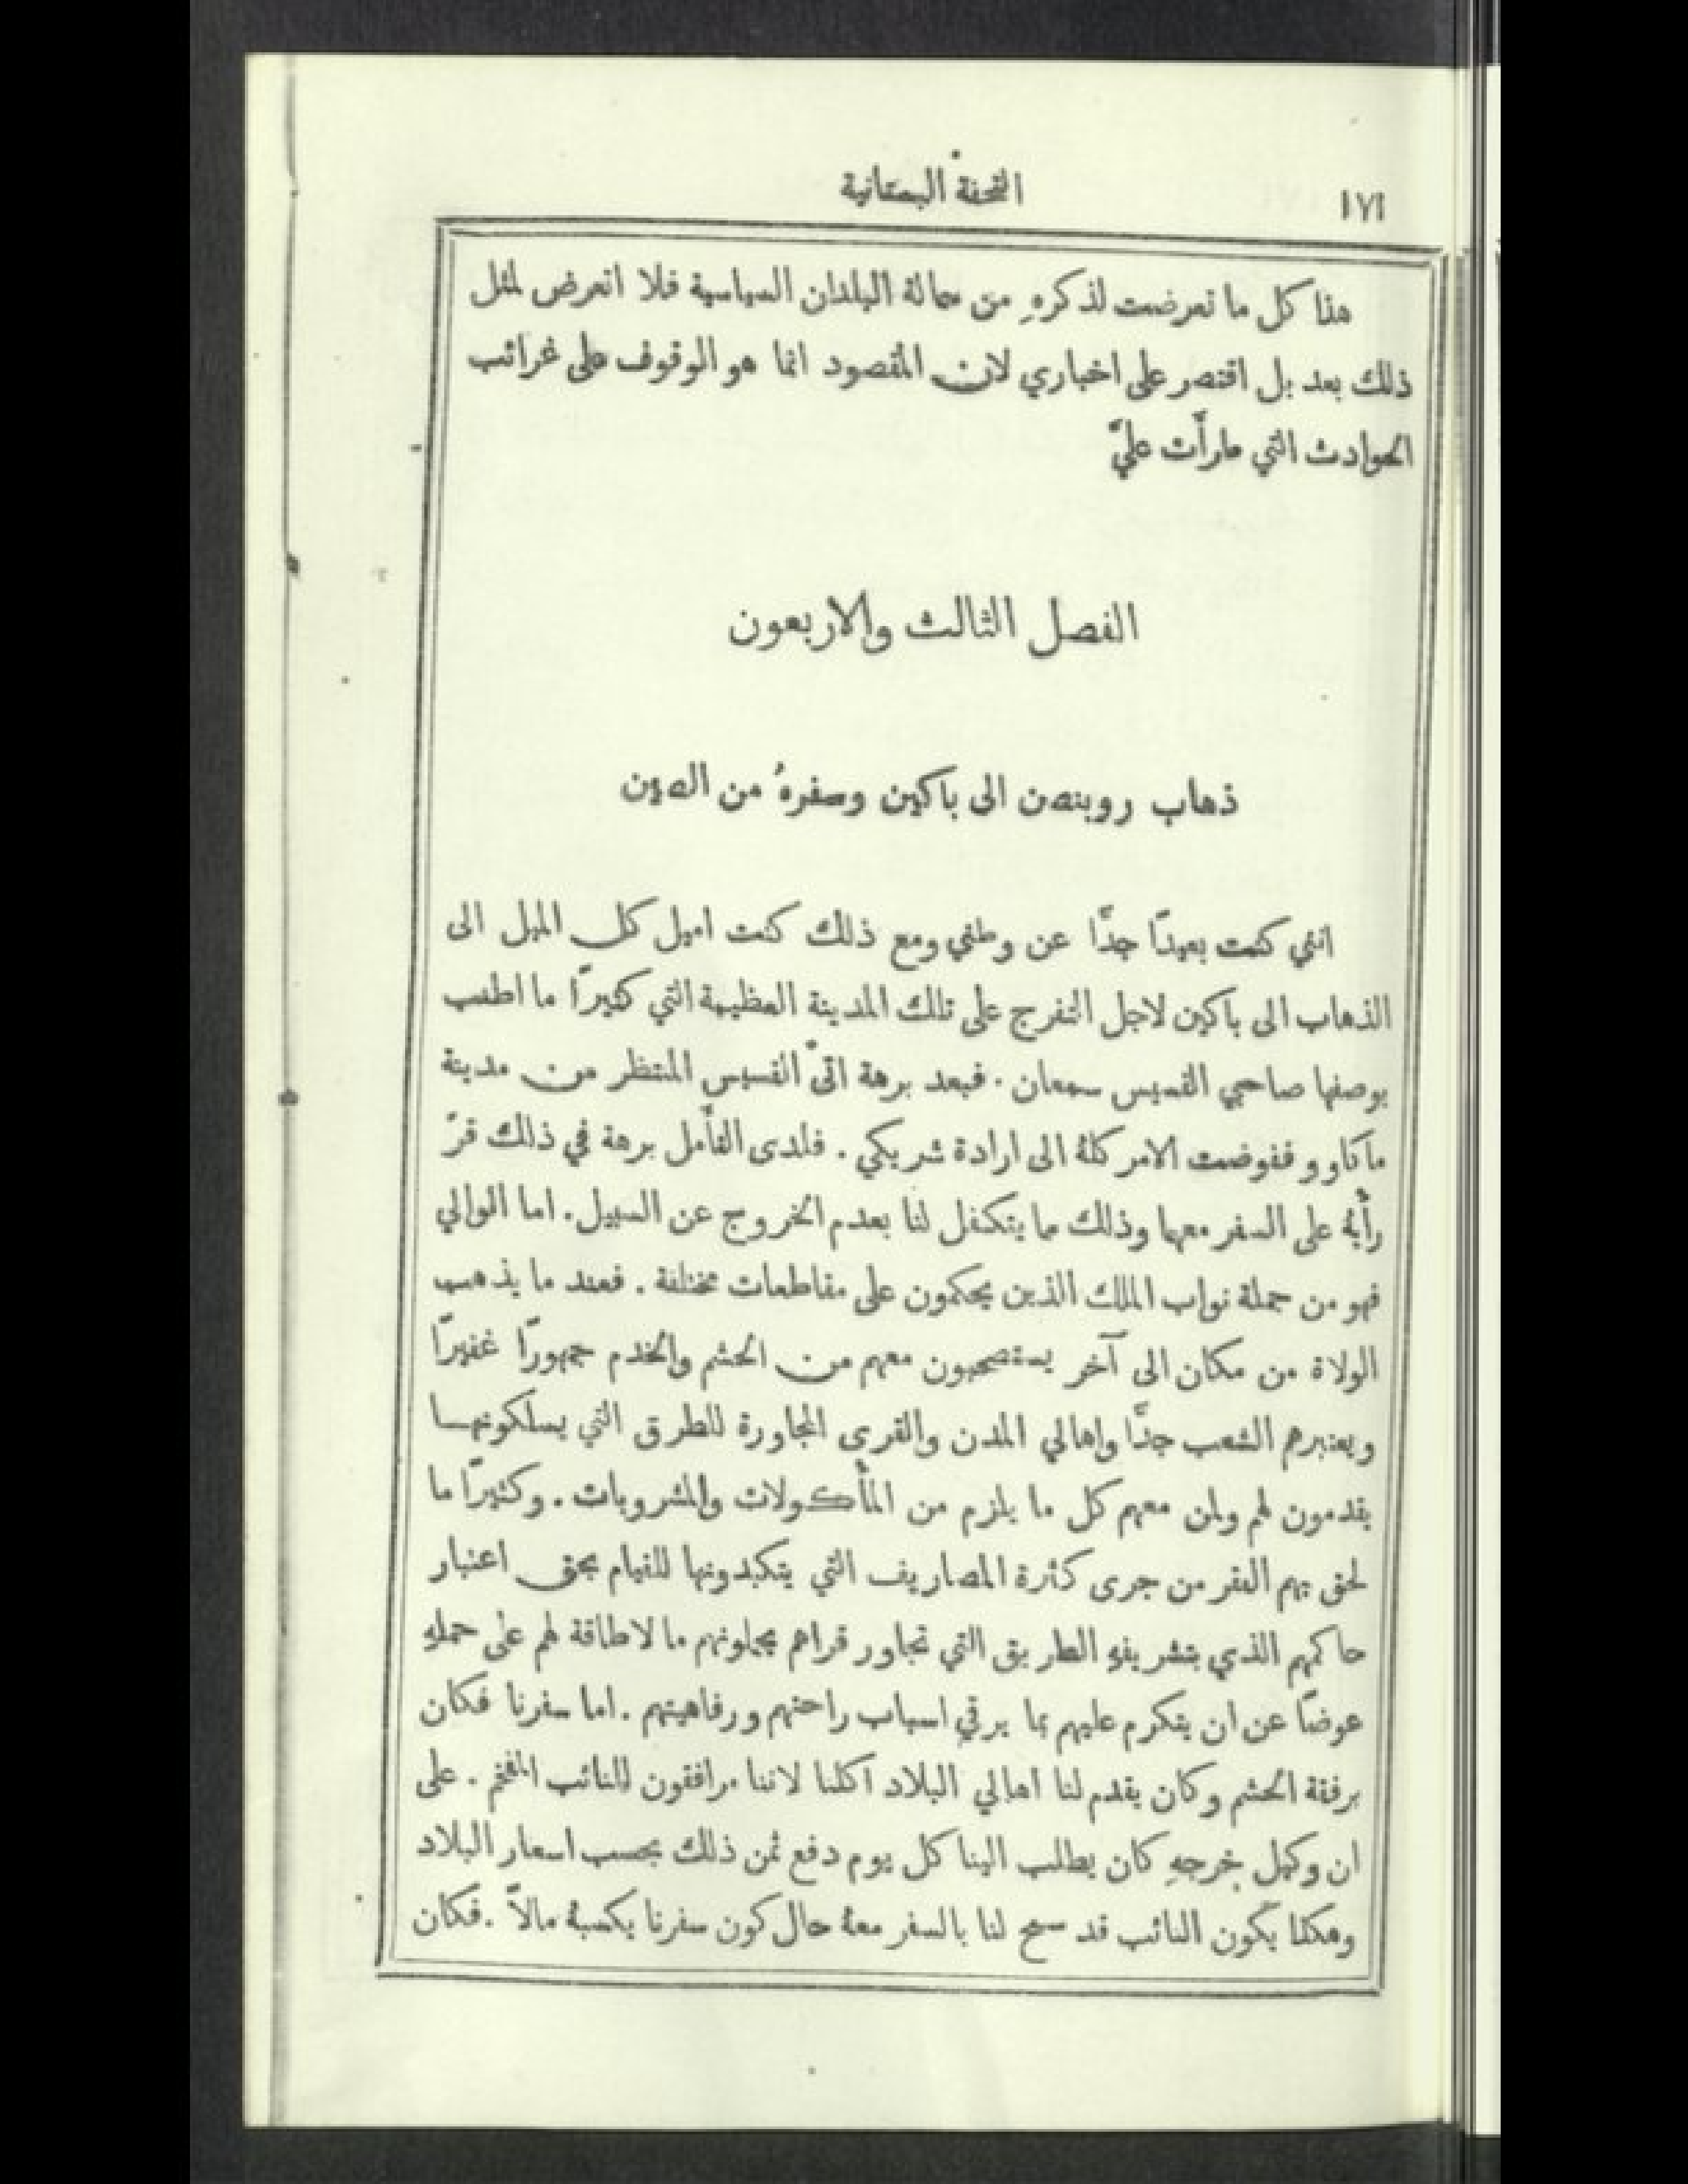 ١٧٦
التحفة البستانية
هذا كل ما تعرضت لذكرهِ من حالة البلدان السياسية فلا اتعرض لمثل
ذلك بعد بل اقتصر على اخباري لان المقصود انما هو الوقوف على غرائب
الحوادث التي طرأت عليَّ
الفصل الثالث والاربعون
ذهاب روبنصن الى باكين وسفرهُ من الصين
انني كنت بعيدًا جدًّا عن وطني ومع ذلك كنت اميل كل الميل الى
الذهاب الى باكين لاجل التفرج على تلك المدينة العظيمة التي كثيرًا ما اطنب
بوصفها صاحبي القسيس سمعان . فبعد برهة اتى القسيس المنتظر من مدينة
ماكاو و ففوضت الامر كلهُ الى ارادة شريكي . فلدى التأمل برهة في ذلك قرَّ
رأيهُ على السفر معهما وذلك مما يتكفل لنا بعدم الخروج عن السبيل . اما الوالي
فهو من جملة نواب الملك الذين يحكمون على مقاطعات مختلفة . فعند ما يذهب
الولاة من مكان الى آخر يستصحبون معهم من الحشم والخدم جمهورًا غفيرًا
ويعتبرهم الشعب جدًّا واهالي المدن والقرى المجاورة للطرق التي يسلكونها
يقدمون لهم ولمن معهم كل ما يلزم من المأكولات والمشروبات . وكثيرًا ما
لحق بهم الفقر من جرى كثرة المصاريف التي يتكبدونها للقيام بحق اعتبار
حاكمهم الذي بتشريفهِ الطريق التي تجاور قراهم يحملونهم ما لا طاقة لهم على حملهِ
عوضًا عن ان يتكرم عليهم بما يرقي اسباب راحتهم ورفاهيتهم . اما سفرنا فكان
برفقة الحشم وكان يقدم لنا اهالي البلاد اكلنا لاننا مرافقون للنائب المفخم . على
ان وكيل خرجهِ كان يطلب الينا كل يوم دفع ثمن ذلك بحسب اسعار البلاد
وهكذا يكون النائب قد سمح لنا بالسفر معهُ حال كون سفرنا يكسبهُ مالاً . فكان